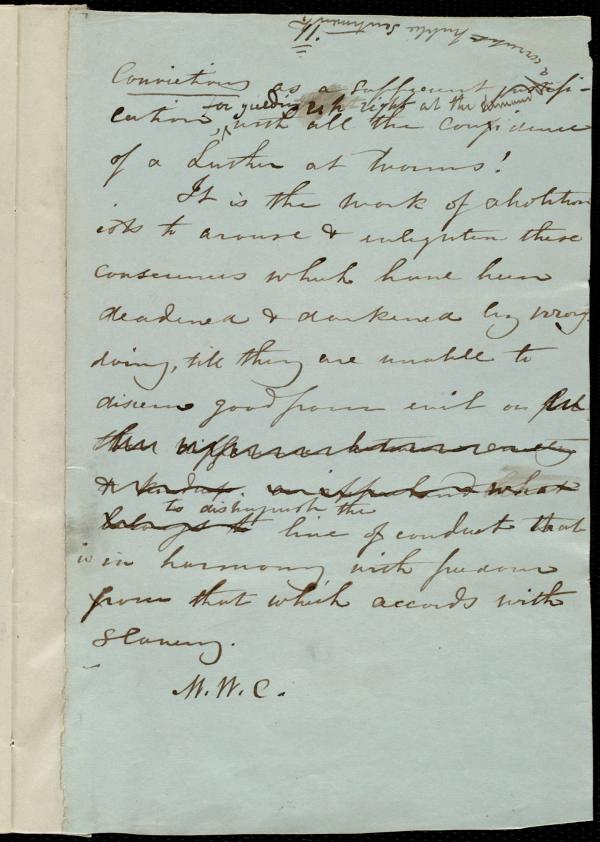 a corrupt public sentiment,
Convictions as a sufficient justifi-
for yielding right at the demand of
cation, with all the confidence
of a Luther at Worms!
It is the work of abolition
ists to arouse & enlighten these
consciences which have been
deadened & darkened by wrong
doing, till they are unable to
discern good from evil or
what
to distinguish the
belongs to line of conduct that
is in harmony with freedom
from that which accords with
Slavery.
M. W. C.